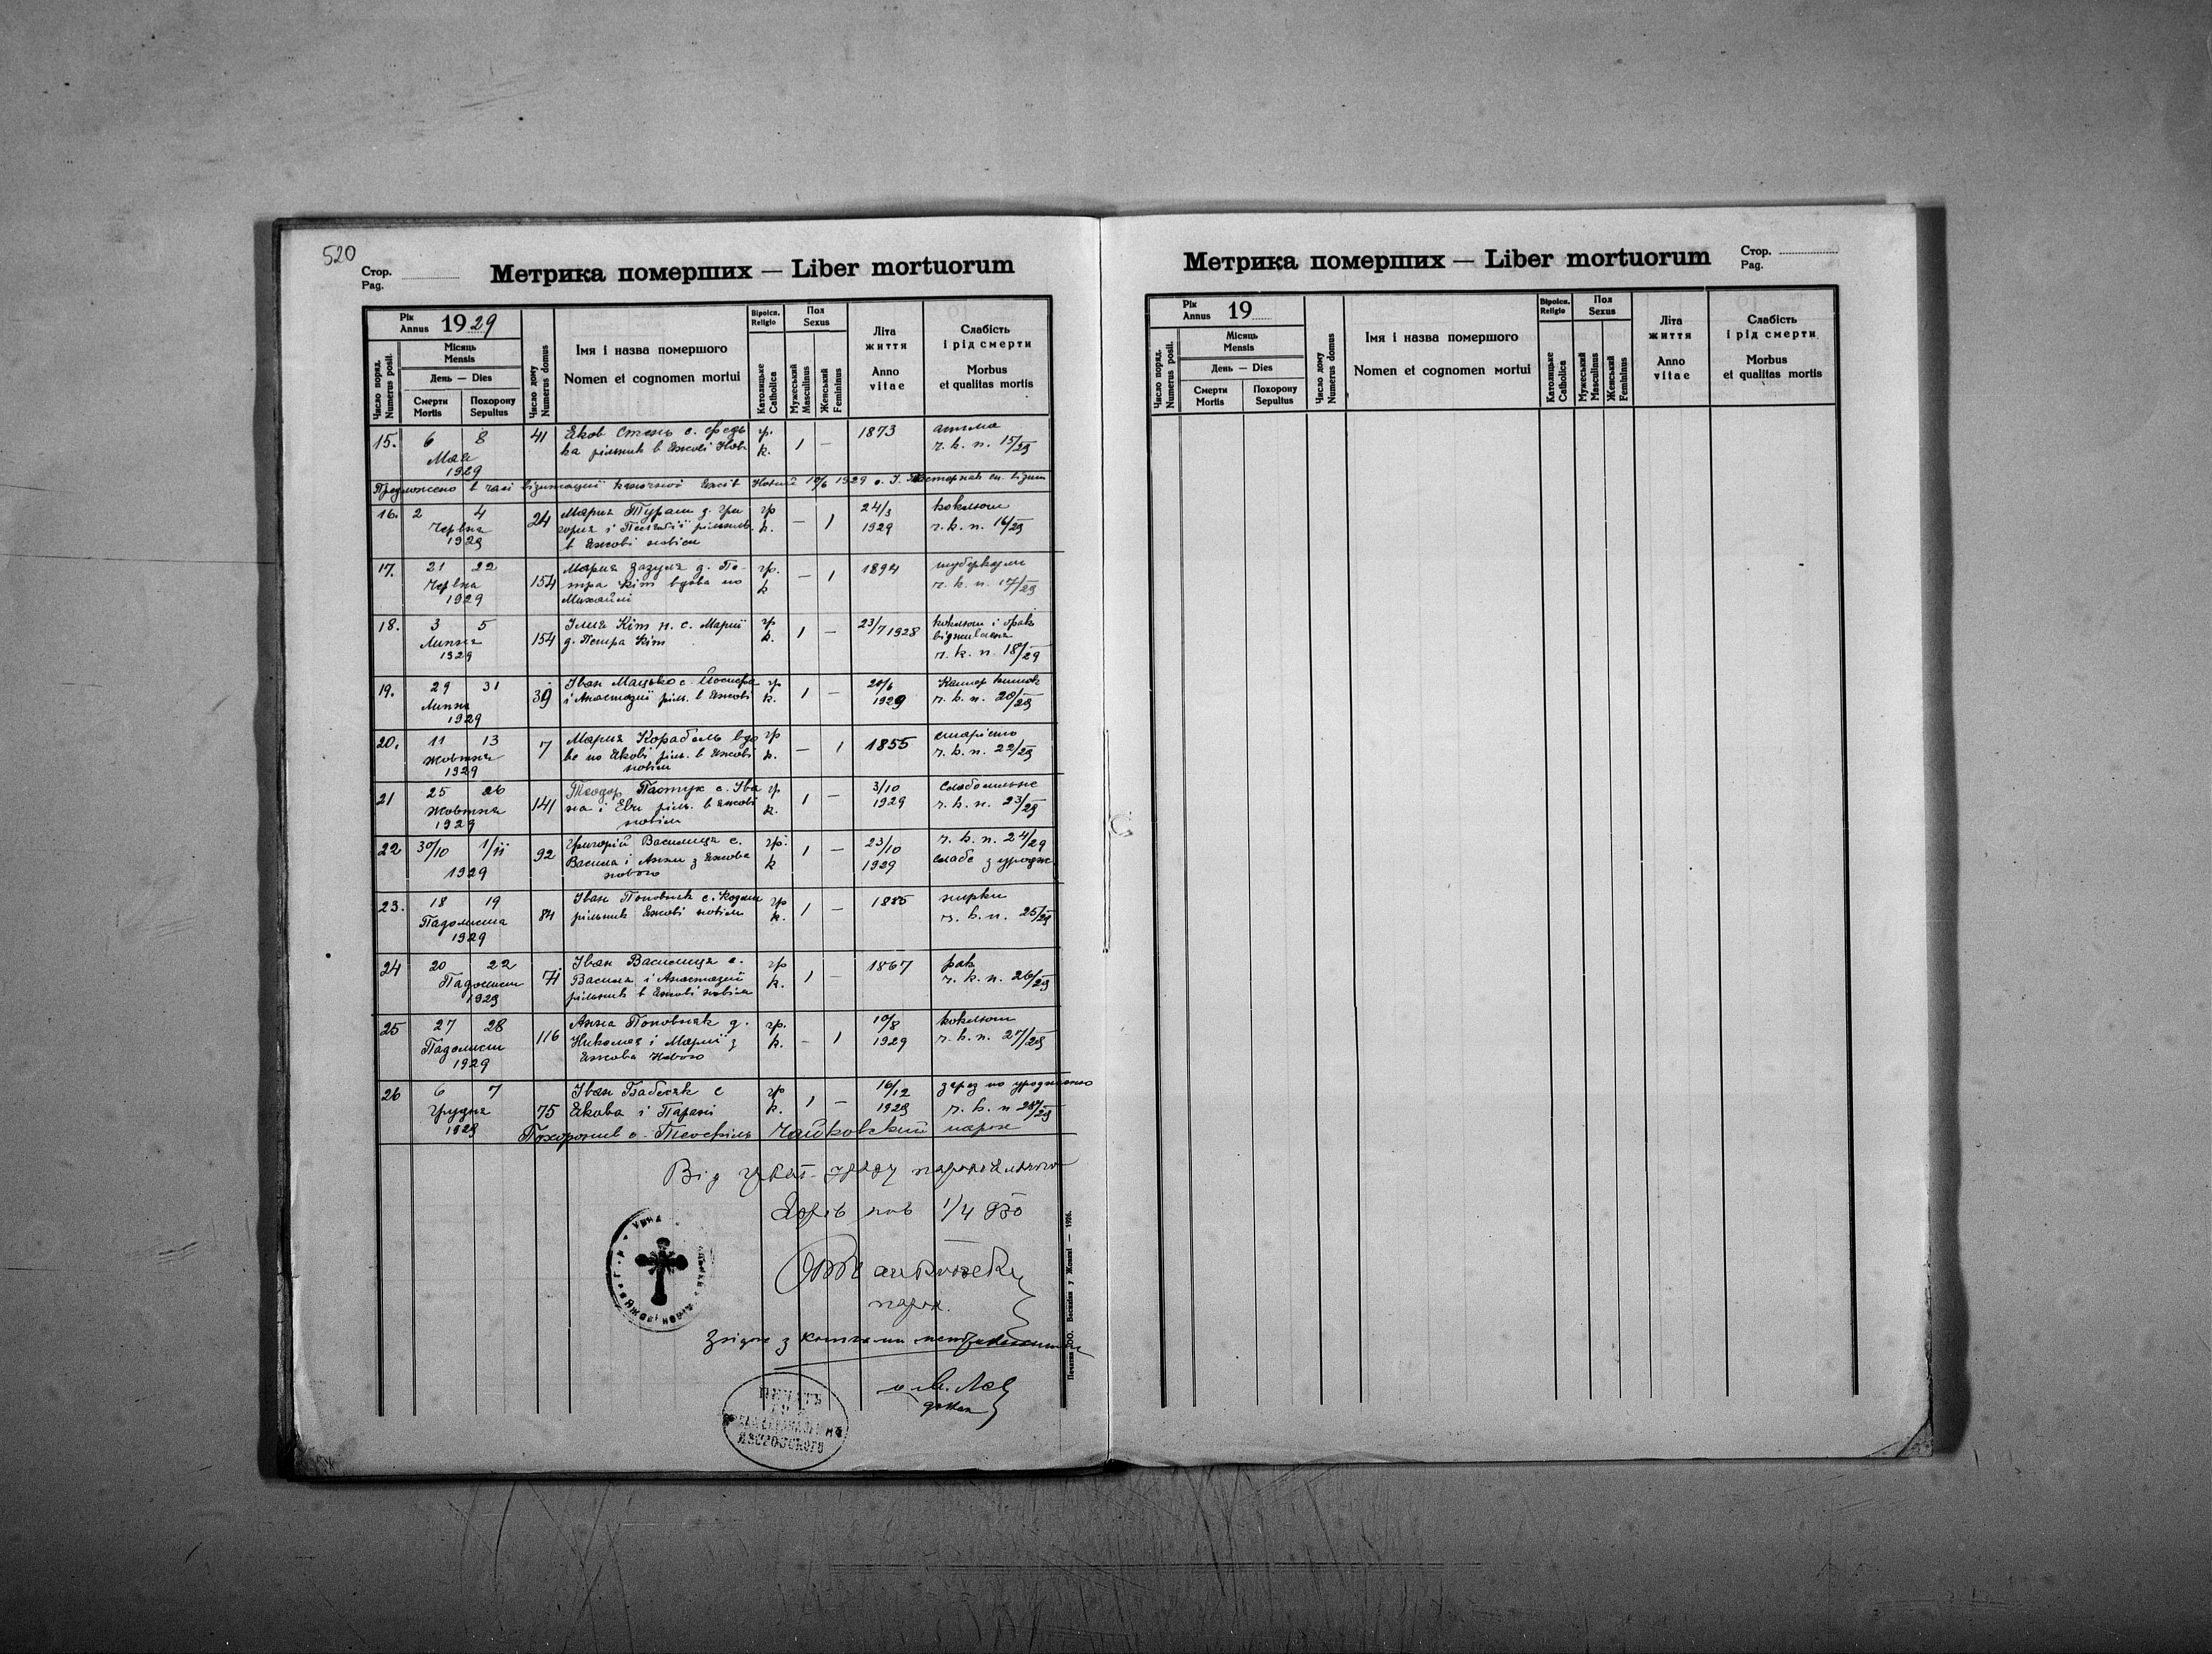 520
Стор.
Pag.
Метрика померших — Liber mortuorum
Рік
Annus 1929
Місяць
Mensis
День — Dies
Число поряд.
Numerus posit.
Смерти
Mortis
Похорону
Sepultus
Число дому
Numerus domus
Імя і назва помершого
Nomen et cognomen mortui
Віроісп.
Religio
Католицьке
Catholica
Пол
Sexus
Мужеський
Masculinus
Женський
Femininus
Літа
життя
Anno
vitae
Слабість
і рід смерти
Morbus
et qualitas mortis
15. 6 8 Мая 1929 41
Яков с. Федь
ка рільник в Яжові Нов.
гр. к. 1 — 1873
астма
ч. к. п. 15/29
16. 2 4 Червня 1929 24
Мария д. Гри
гория і рільник.
в Яжові новім
гр к. — 1 24/3 1929
коклюш
ч. к. п. 16/29
17. 21 22 Червня 1929 154
Мария Зазуля д. Пе-
тра Кіт вдова по
Михайлі
гр. к — 1 1894
туберкули
ч. к. п. 17/29
18. 3 5 Липня 1929 154
Ілия Кіт н. с. Марії
д. Петра Кіт
гр к. 1 — 23/7 1928
коклюш і брак
відживленя
ч. к. п. 18/29
19. 29 31 Липня 1929 39
Іван Мацько с. Йосифа
і Анастазії ріль. в Яжові
гр к. 1 — 20/6 1929
кишок
ч. к. п. 20/29
20. 11 13 Жовтня 1929 7
Мария Корабель вдо
ва по Якові ріль. в Яжові
новім
гр к. — 1 1855
старість
ч. к. п. 22/29
21 25 26 Жовтня 1929 141
Теодор Пастух с. Іва
на і Еви ріль. в Яжові
новім
гр. к. 1 — 3/10 1929
ч. к. п. 23/29
22 30/10 1/11 1929 92
Григорій Василиця с.
Василя і Анни з Яжова
нового
гр. к 1 — 23/10 1929
ч. к. п. 24/29
слабе з уродж.
23. 18 19 Падолиста 1929 84
Іван Поповняк с. Козми
рільник Яжові новім
гр к. 1 — 1885
нирки
ч. к. п. 25/29
24 20 22 Падолиста 1929 71
Іван Василиця с.
Василя і Анастазії
рільник в Яжові новім
гр к. 1 — 1867
рак
ч. к. п. 26/29
25 27 28 Падолиста 1929 116
Анна Поповняк д.
Николая і Марії з
Яжова Нового
гр. к. — 1 10/8 1929
коклюш
ч. к. п. 27/29
26 6 7 Грудня 1929 75
Іван Бабяк с
Якова і Парані
гр к. 1 — 16/12 1929
зараз по уродженю
ч. к. п 28/29
Похоронив о. Теофіль Чайковський парох
Від гр кат. уряду парохіяльного
Яжів нов 1/4 930
парох.
Згідне з книгами
декан
Печатня ЧОО. Василіян у Жовкві — 1926.
Метрика померших — Liber mortuorum
Стор.
Pag.
Рік
Annus 19
Місяць
Mensis
День — Dies
Число поряд.
Numerus posit.
Смерти
Mortis
Похорону
Sepultus
Число дому
Numerus domus
Імя і назва помершого
Nomen et cognomen mortui
Віроісп.
Religio
Католицьке
Catholica
Пол
Sexus
Мужеський
Masculinus
Женський
Femininus
Літа
життя
Anno
vitae
Слабість
і рід смерти
Morbus
et qualitas mortis